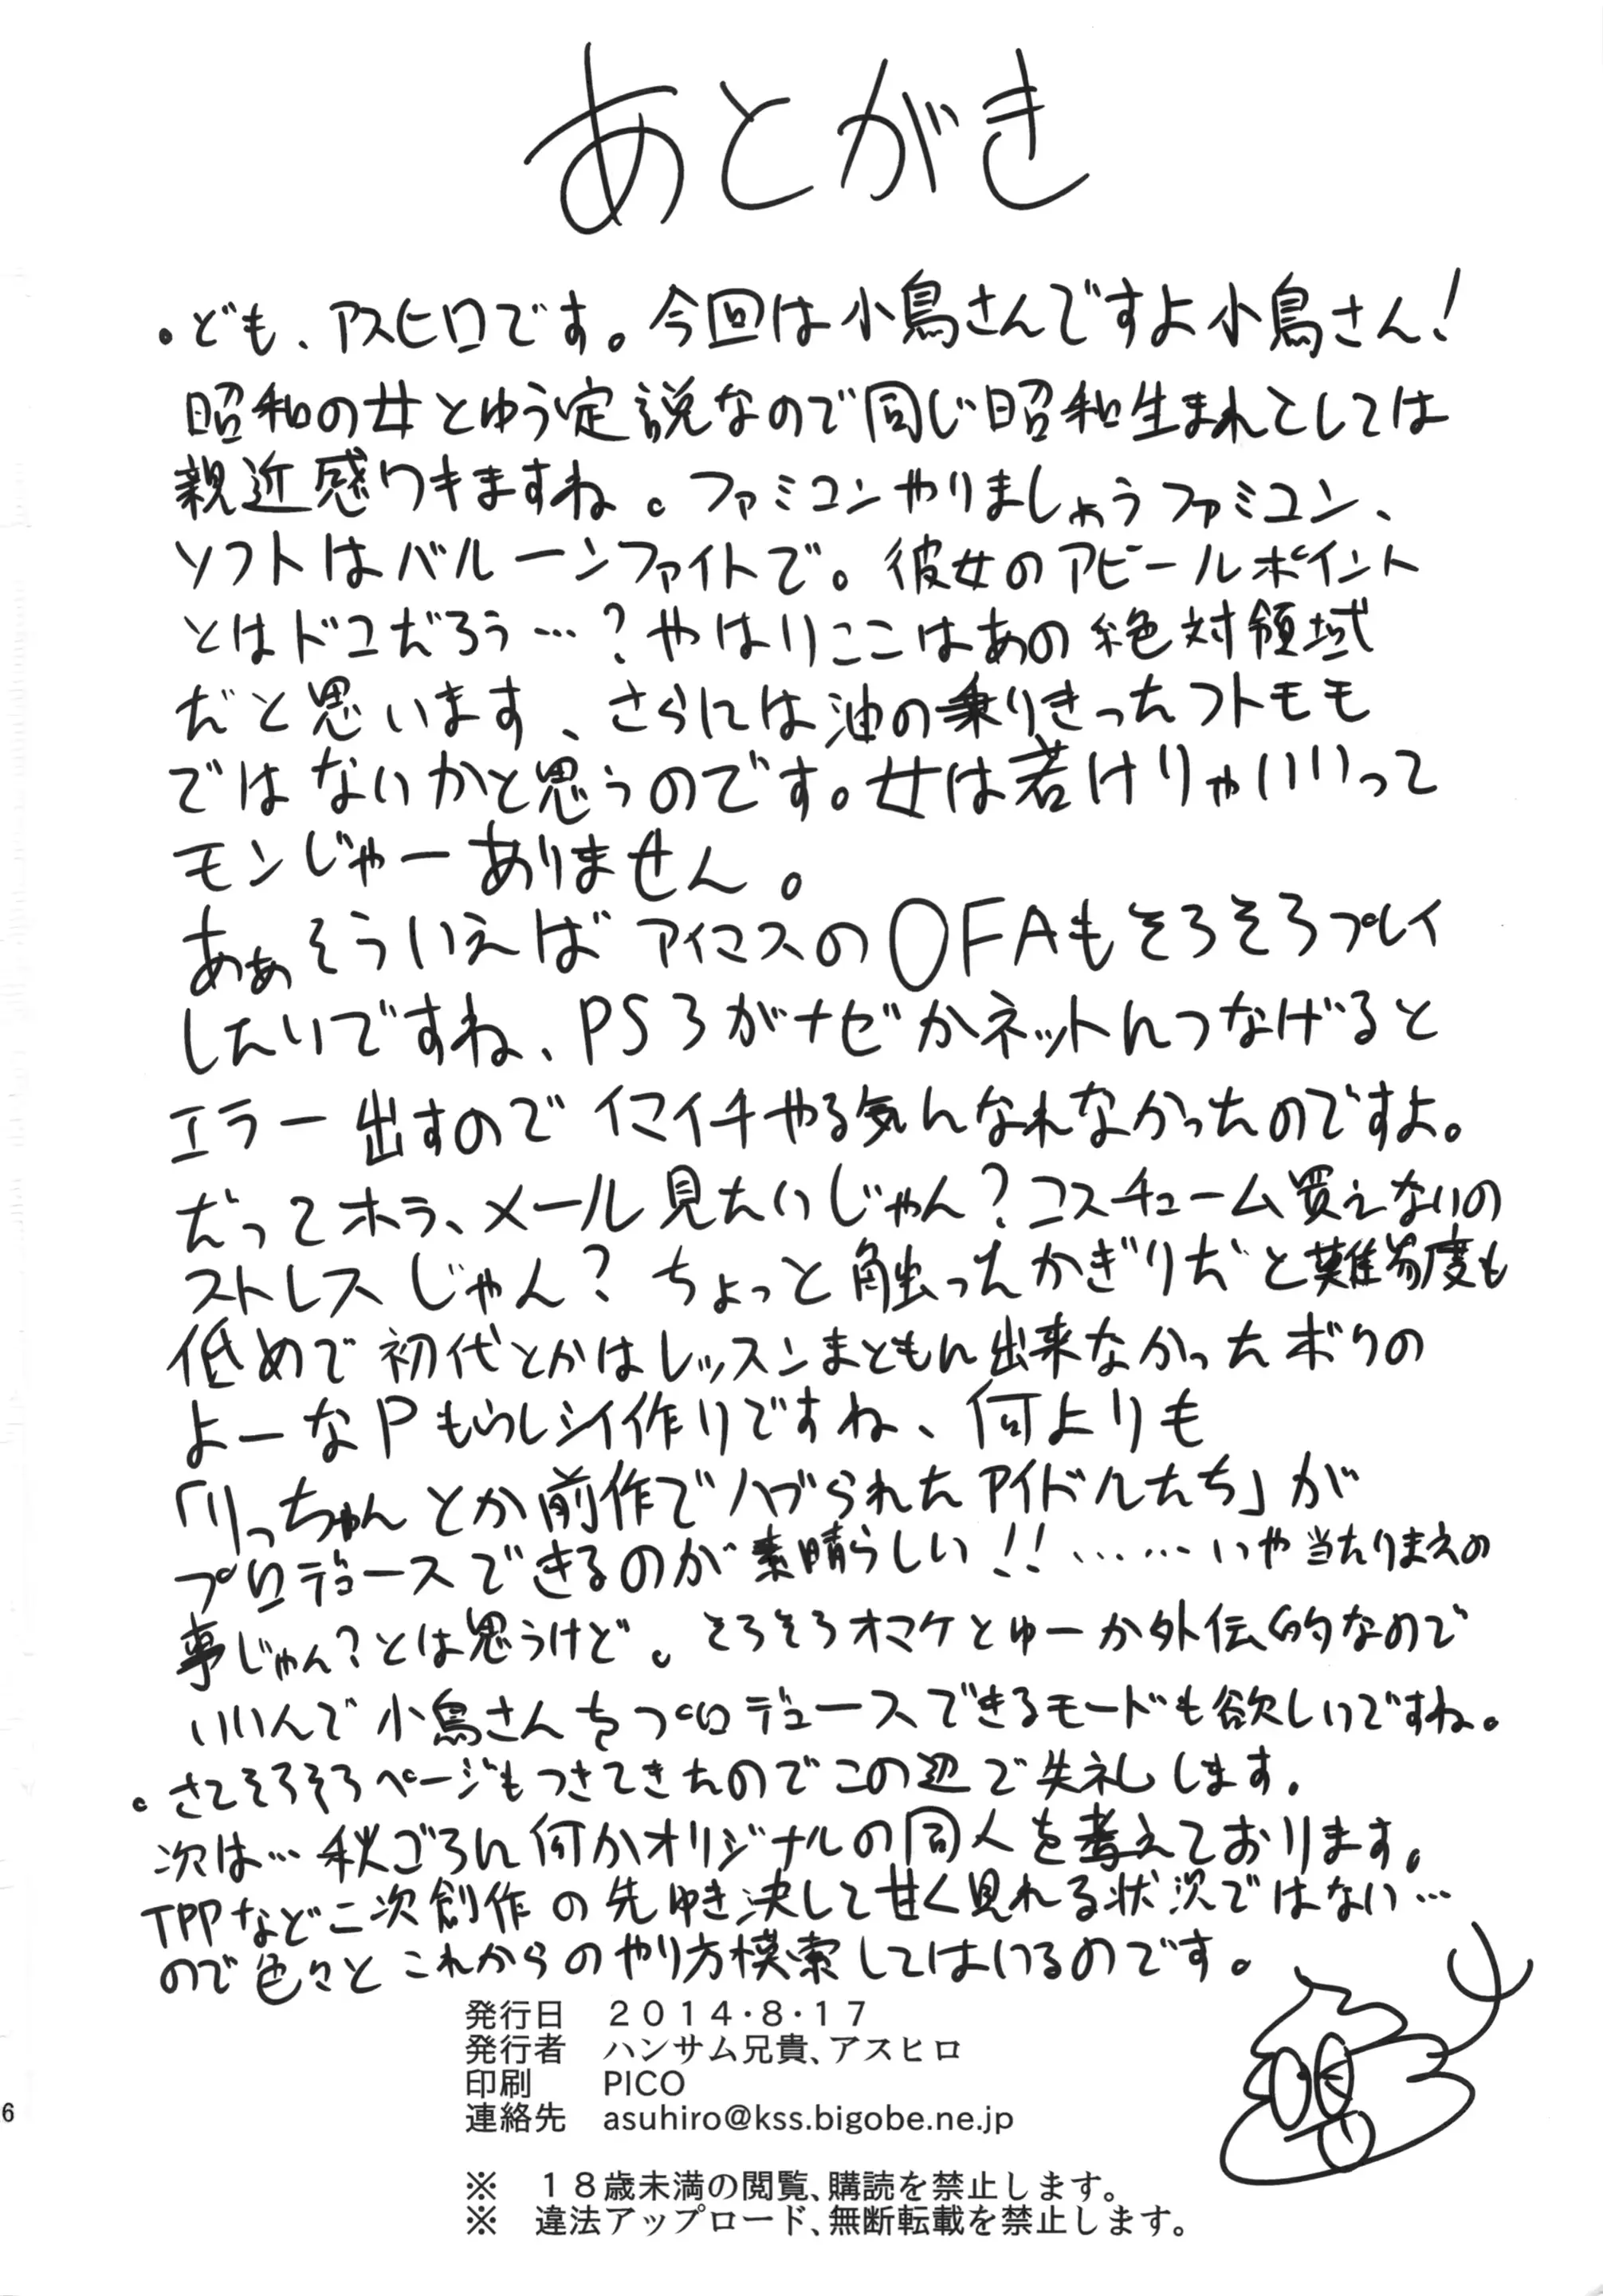 あとがき
・ども、アスヒロです。今回は小鳥さんですよ小鳥さん!
昭和の女とゆう定説なので同じ昭和生まれとしては
親近感ワキますね。ファミコンやりましょうファミコン、
ソフトはバルーンファイトで。彼女のアピールポイント
とはドコだろう…?やはりここはあの絶対領域
だと思います、さらには油の乗りきったフトモモ
ではないかと思うのです。女は若けりゃいいって
モンじゃーありません。
あぁそういえばアイマスのOFAもそろそろプレイ
したいですね、PS3がナゼかネットにつなげると
エラー出すのでイマイチやる気になれなかったのですよ。
だってホラ、メール見たいじゃん?コスチューム買えないの
ストレスじゃん?ちょっと触ったかぎりだと難易度も
低めで初代とかはレッスンまともに出来なかったボクの
よーなPもらしい作りですね、何よりも
「りっちゃんとか前作でハブられたアイドルたち」が
プロデュースできるのが素晴らしい!!……いや当たりまえの
事じゃん?とは思うけど。そろそろオマケとゆーか外伝的なので
いいんで小鳥さんをプロデュースできるモードも欲しいですね。
・さてそろそろページもつきてきたのでこの辺で失礼します。
次は…秋ごろに何かオリジナルの同人を考えております。
TPPなど二次創作の先ゆき決して甘く見れる状況ではない…
ので色々とこれからのやり方模索してはいるのです。
発行日 2014・8・17
発行者 ハンサム兄貴、アスヒロ
印刷 PICO
連絡先 asuhiro@kss.bigobe.ne.jp
※ 18歳未満の閲覧、購読を禁止します。
※ 違法アップロード、無断転載を禁止します。
6